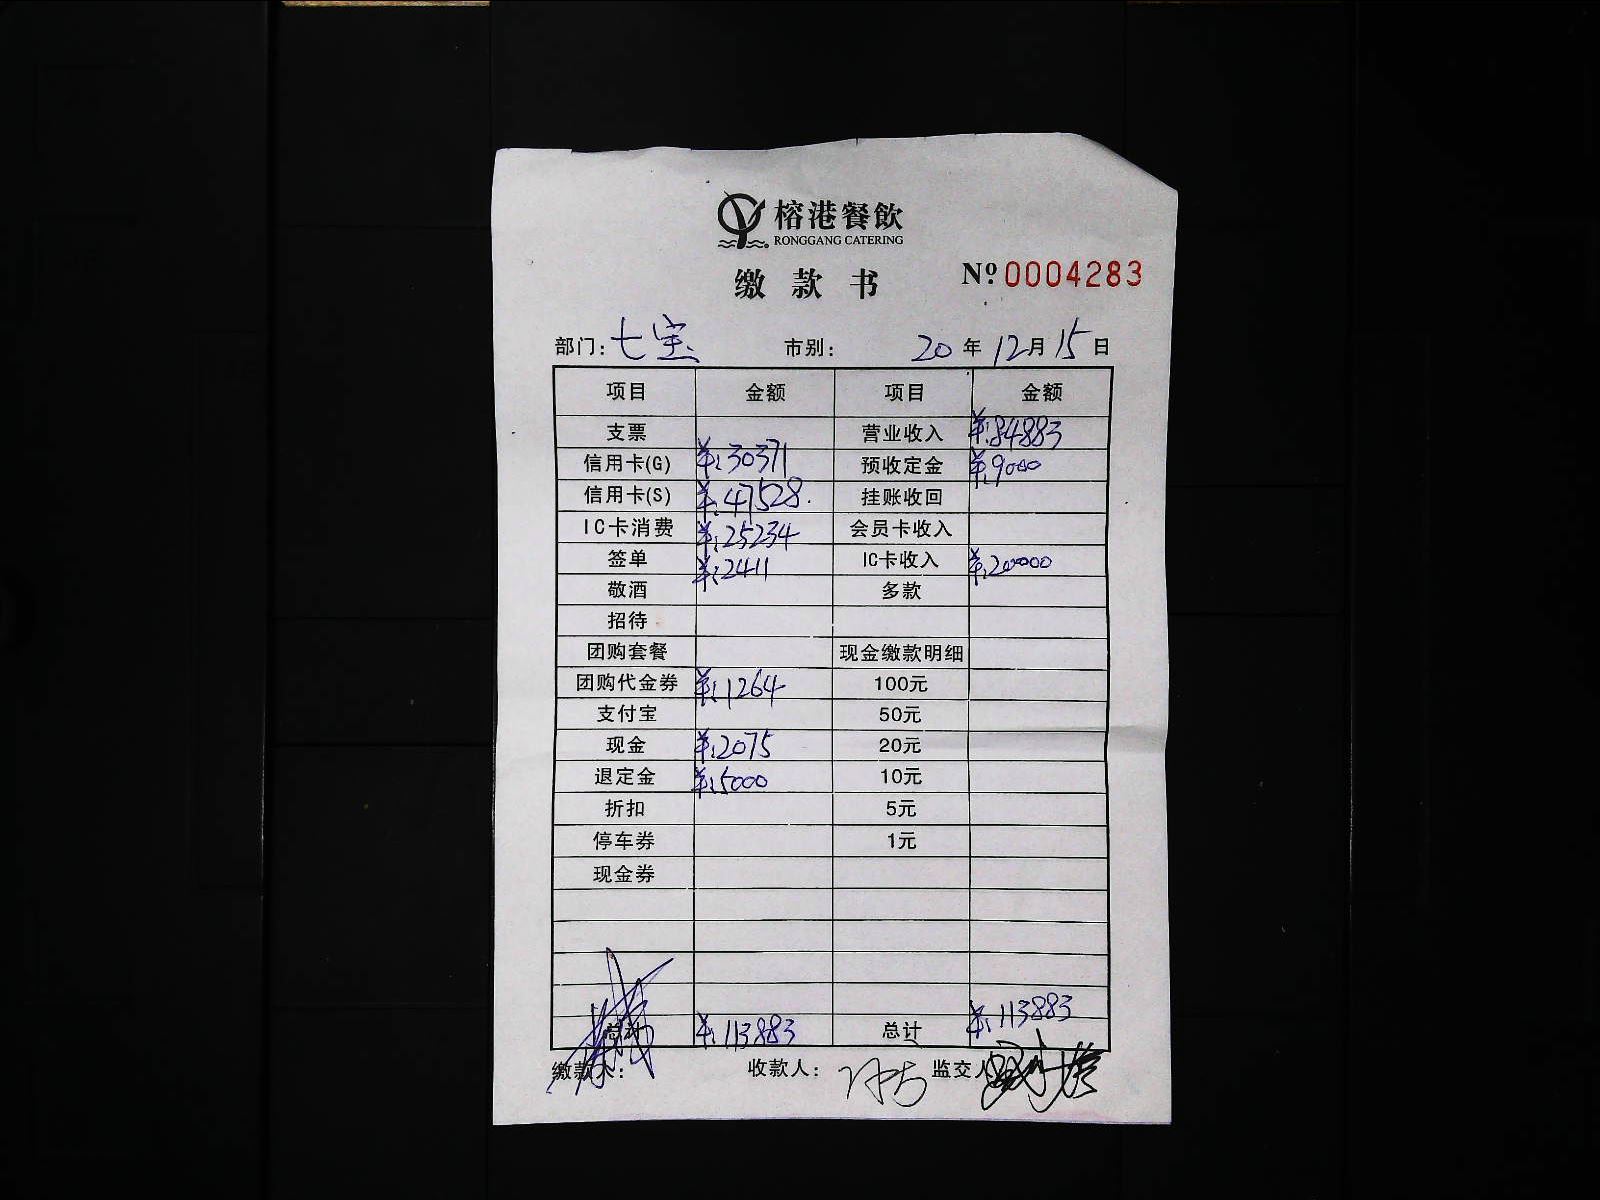 榕港餐飲
RONGGANG CATERING
缴款书 Nº 0004283
部门：七宝 市别： 20年12月15日
项目 金额 项目 金额
支票 营业收入 ¥:84883
信用卡(G) ¥:30371 预收定金 ¥:9000
信用卡(S) ¥:47528. 挂账收回
IC卡消费 ¥:25234 会员卡收入
签单 ¥:2411 IC卡收入 ¥:20000
敬酒 多款
招待
团购套餐 现金缴款明细
团购代金券 ¥:1264 100元
支付宝 50元
现金 ¥:2075 20元
退定金 ¥:5000 10元
折扣 5元
停车券 1元
现金券
总计 ¥:113883 总计 ¥:113883
缴款人： 收款人： 监交人